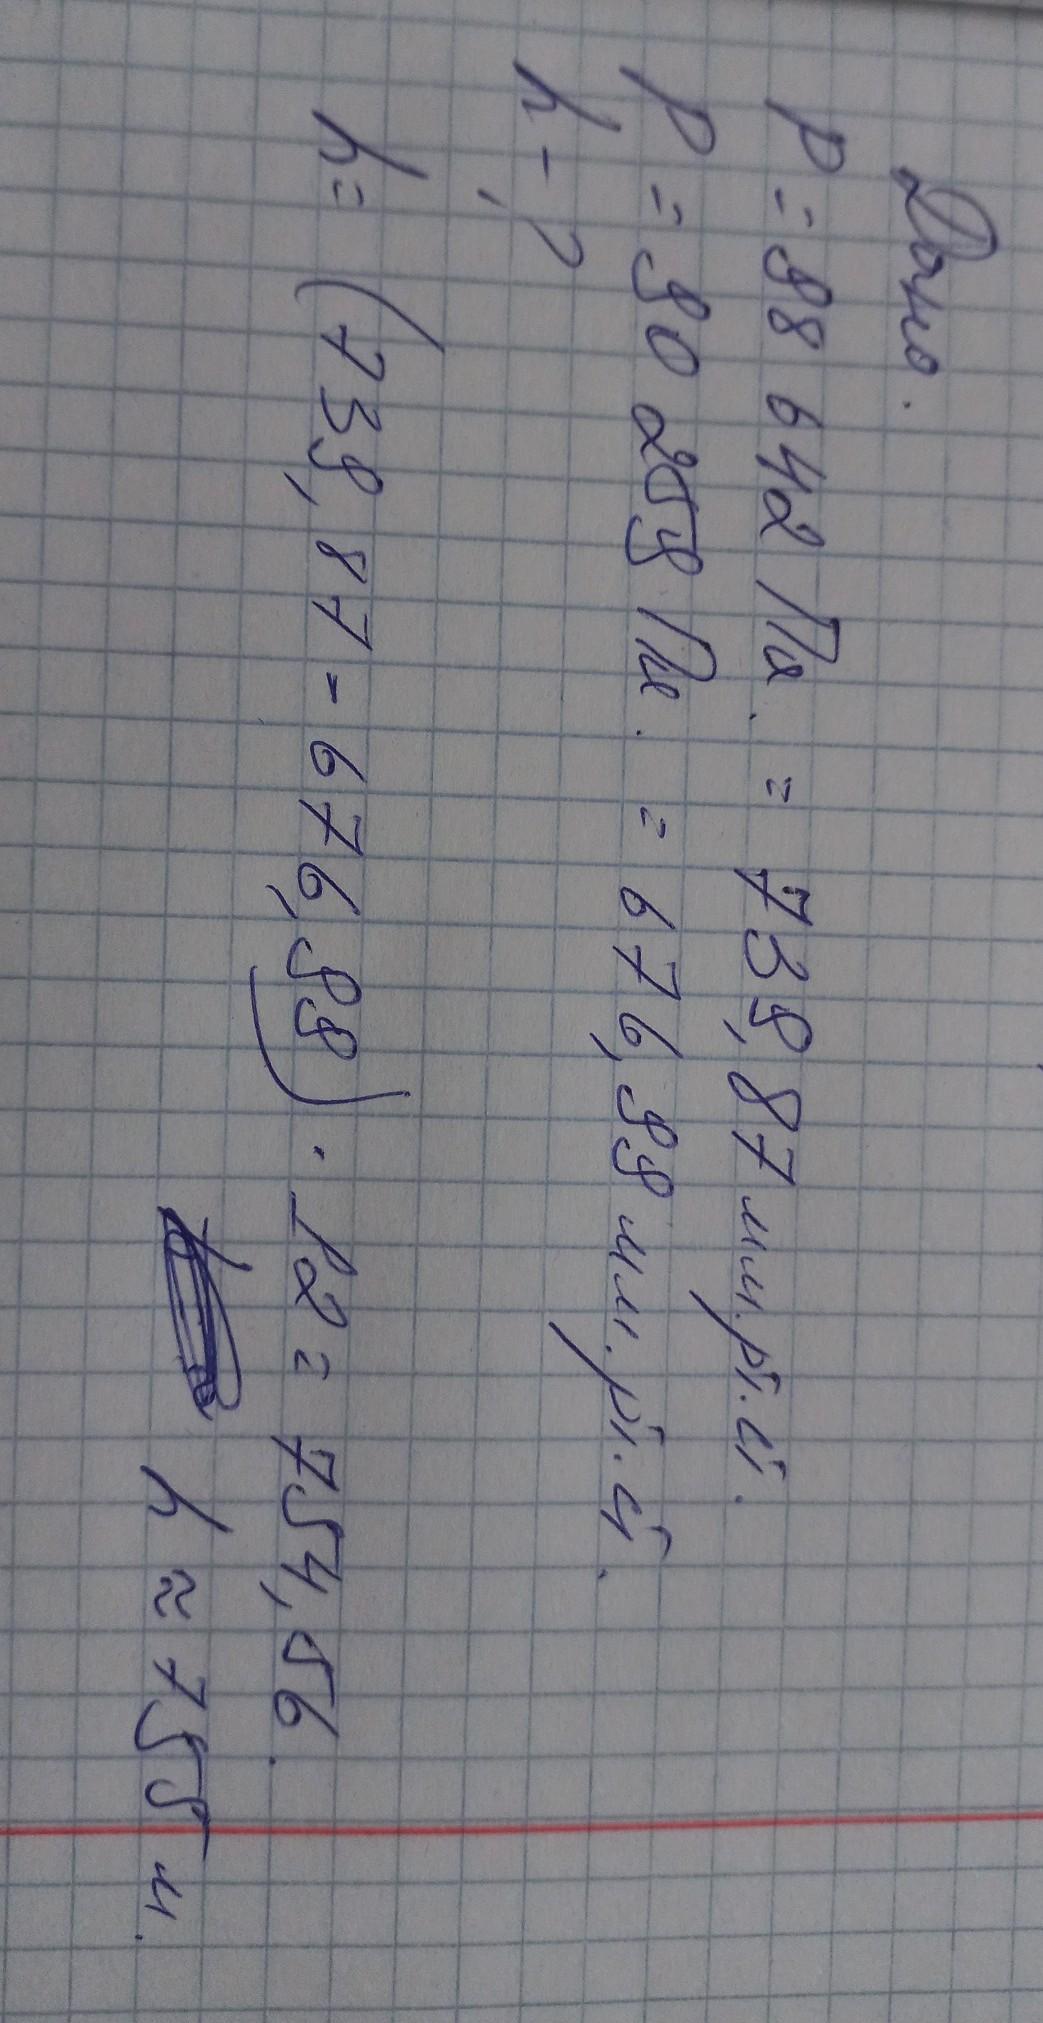 Дано.
P = 98 642 Па. = 739,87 мм.рт.ст.
P = 90 259 Па. = 676,99 мм.рт.ст.
h - ?
h = (739,87 - 676,99) · 12 = 754,56.
h ≈ 755 м.